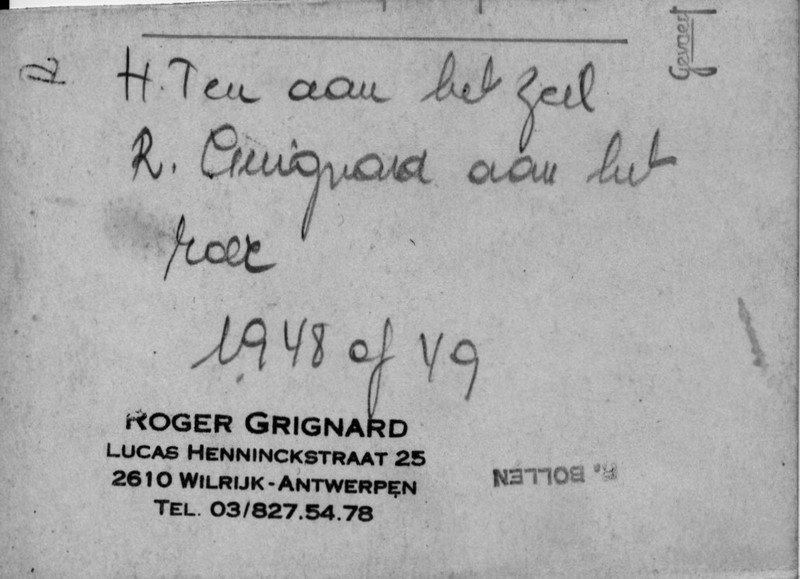 H. Ten aan het zeil
R. Grignard aan het
roer
1948 of 49
ROGER GRIGNARD
LUCAS HENNINCKSTRAAT 25
2610 WILRIJK-ANTWERPEN
TEL. 03/827.54.78
R. BOLLEN
Gevaert